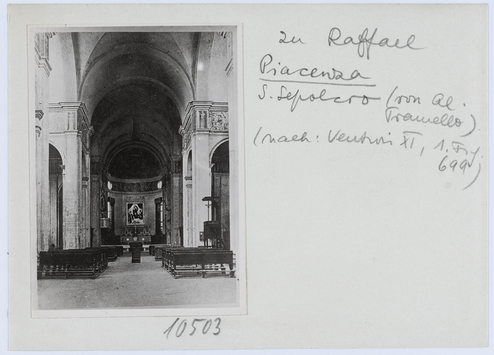 zu Raffael
Piacenza
S. Sepolcro (von Al.
Tramello)
(nach: Venturi XI, 1. Fig.
699)
10503